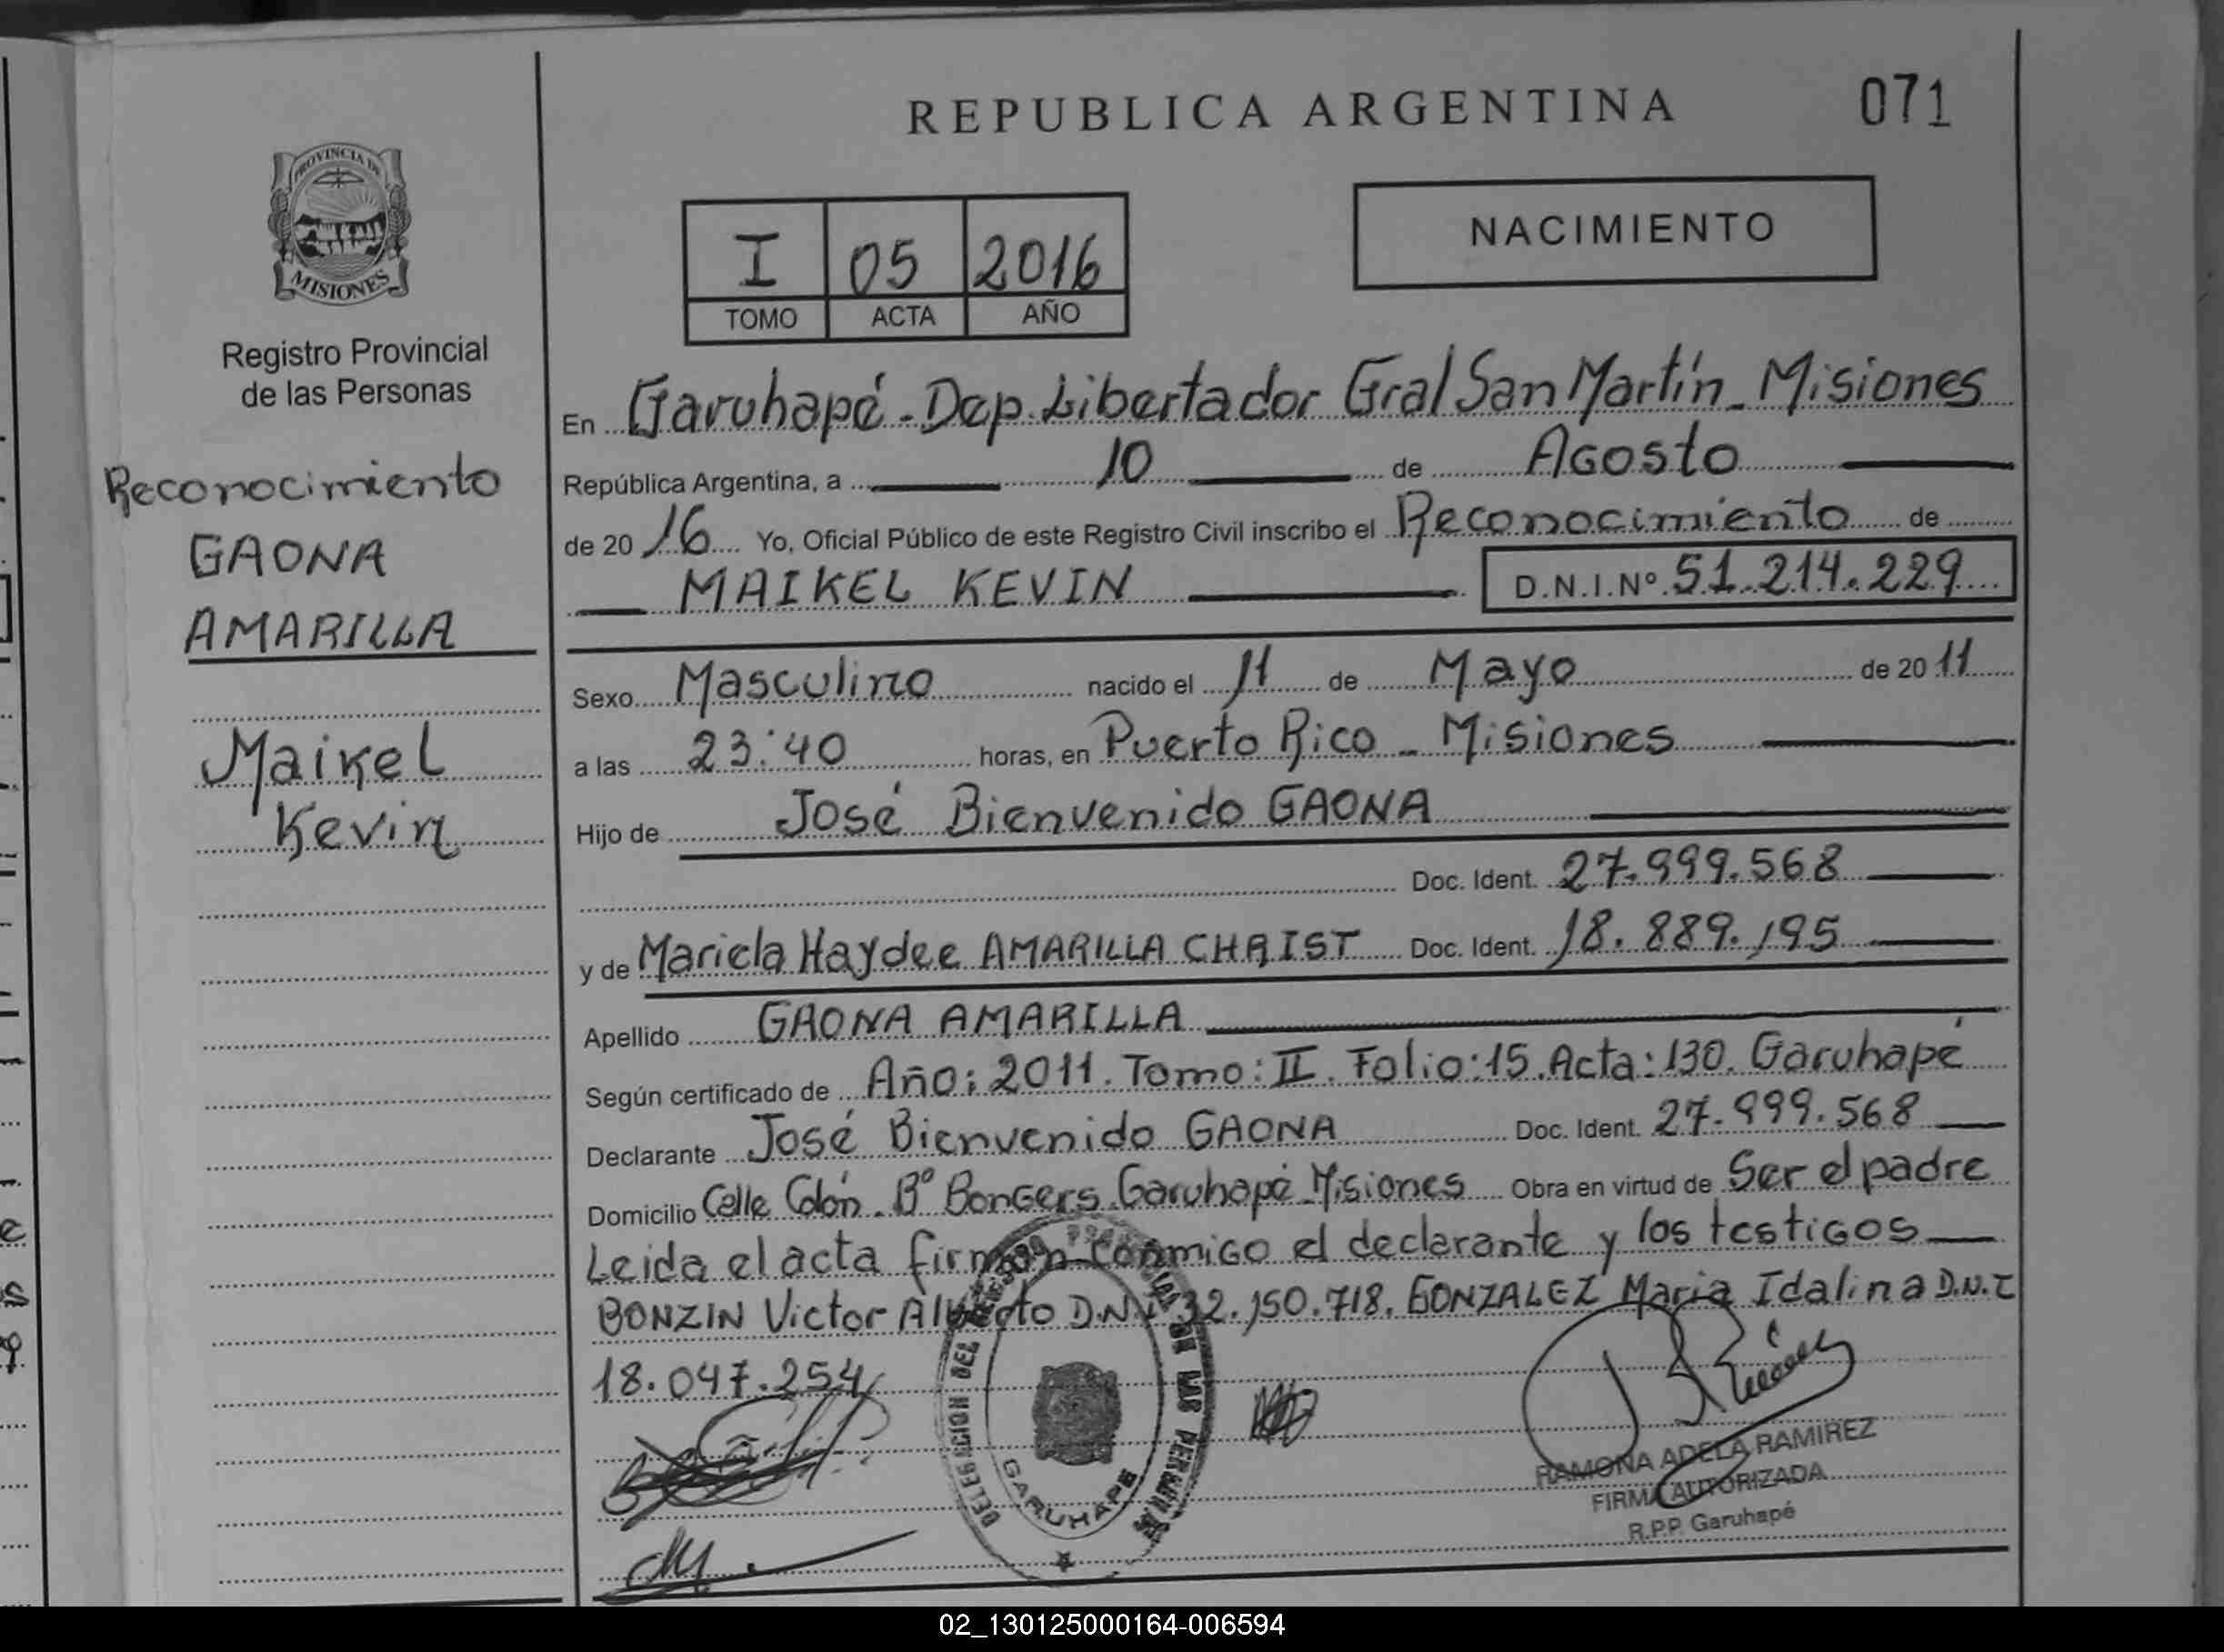 REPUBLICA ARGENTINA
071
PROVINCIA DE
MISIONES
Registro Provincial
de las Personas
Reconocimiento
GAONA
AMARILLA
Maikel
Kevin
I 05 2016
TOMO ACTA AÑO
NACIMIENTO
En Garuhapé - Dep. Libertador Gral San Martín - Misiones
República Argentina, a 10 de Agosto
de 2016 Yo, Oficial Público de este Registro Civil inscribo el Reconocimiento de
MAIKEL KEVIN D.N.I.Nº 51.214.229
Sexo Masculino nacido el 11 de Mayo de 2011
a las 23:40 horas, en Puerto Rico - Misiones
Hijo de José Bienvenido GAONA
Doc. Ident. 27.999.568
y de Mariela Haydee AMARILLA CHRIST Doc. Ident. 18.889.195
Apellido GAONA AMARILLA
Según certificado de Año: 2011. Tomo: II. Folio: 15. Acta: 130. Garuhapé
Declarante José Bienvenido GAONA Doc. Ident. 27.999.568
Domicilio Calle Colón. Bº Bongers. Garuhapé - Misiones Obra en virtud de Ser el padre
Leida el acta firman conmigo el declarante y los testigos
BONZIN Victor Alberto D.N.I 32.150.718. GONZALEZ Maria Idalina D.N.I
18.047.254
GARUHAPE
RAMONA ADELA RAMIREZ
FIRMA AUTORIZADA
R.P.P. Garuhapé
02_130125000164-006594